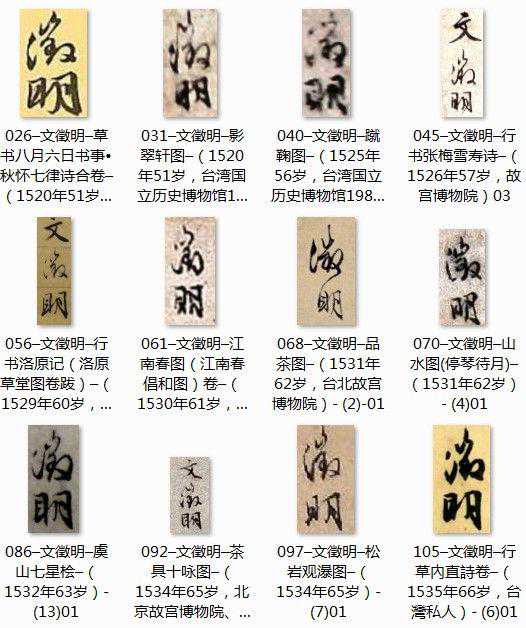 徵明
徵明
徵明
文徵明
026–文徵明–草
书八月六日书事•
秋怀七律诗合卷–
（1520年51岁...
031–文徵明–影
翠轩图–（1520
年51岁，台湾国
立历史博物馆1...
040–文徵明–蹴
鞠图–（1525年
56岁，台湾国立
历史博物馆198...
045–文徵明–行
书张梅雪寿诗–（
1526年57岁，故
宫博物院）03
文徵明
徵明
徵明
徵明
056–文徵明–行
书洛原记（洛原
草堂图卷跋）–（
1529年60岁，...
061–文徵明–江
南春图（江南春
倡和图）卷–（
1530年61岁，...
068–文徵明–品
茶图–（1531年
62岁，台北故宫
博物院）- (2)-01
070–文徵明–山
水图(停琴待月)–
（1531年62岁）
- (4)01
徵明
文徵明
徵明
徵明
086–文徵明–虞
山七星桧–（
1532年63岁）-
(13)01
092–文徵明–茶
具十咏图–（
1534年65岁，北
京故宫博物院、...
097–文徵明–松
岩观瀑图–（
1534年65岁）-
(7)01
105–文徵明–行
草内直詩卷–（
1535年66岁，台
灣私人）- (6)01